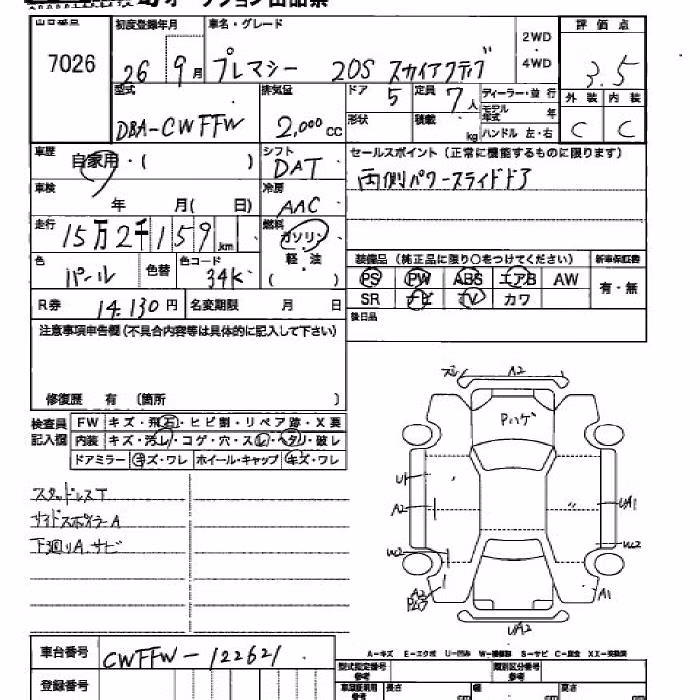 オークション出品票
出品番号 初度登録年月 車名・グレード 2WD・4WD 評価点
7026 26 9月 プレマシー 20S スカイアクティブ 3.5
型式 排気量 ドア 定員 ディーラー・並行 外装 内装
DBA-CWFFW 2,000cc 5 7人 モデル年式 年 C C
形状 積載 kg ハンドル 左・右
車歴 自家用・( ) シフト DAT セールスポイント(正常に機能するものに限ります)
車検 年 月( 日) 冷房 AAC 両側パワースライドドア
走行 15万2千159km 燃料 ガソリン・軽・油 ( )
色 パール 色替 色コード 34K
装備品(純正品に限り○をつけてください) 新車保証書
PS PW ABS エアB AW 有・無
SR ナビ TV カワ
R券 14,130円 名変期限 月 日 後日品
注意事項申告欄(不具合内容等は具体的に記入して下さい)
修復歴 有 〔箇所 〕
検査員記入欄 FW キズ・飛石・ヒビ割・リペア跡・X要
内装 キズ・汚レ・コゲ・穴・スレ・ヘタリ・破レ
ドアミラー キズ・ワレ ホイール・キャップ キズ・ワレ
スタッドレスT
サイドスポイラーA
下廻りA,サビ
ズレ A2
Pハゲ
U1
A2 UA1
UC2 UC2
A2 A1
UA2
A-キズ E-エクボ U-凹み W-補修跡 S-サビ C-腐食 XX-交換済
車台番号 CWFFW-122621
登録番号
型式指定番号 参考 類別区分番号 参考
長さ 幅 高さ